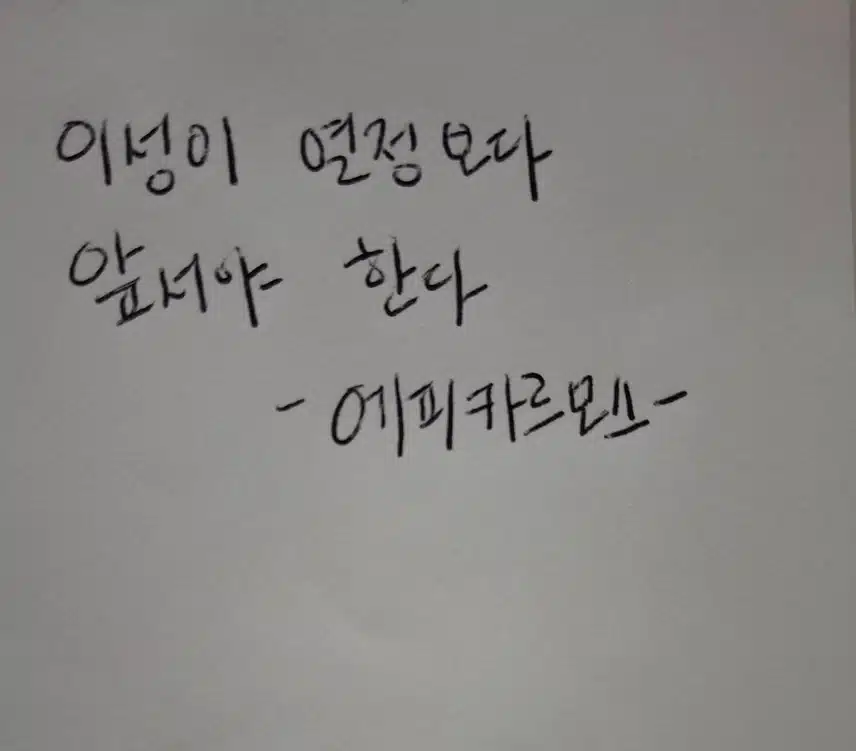 이성이 열정보다
앞서야 한다
- 에피카르모스 -